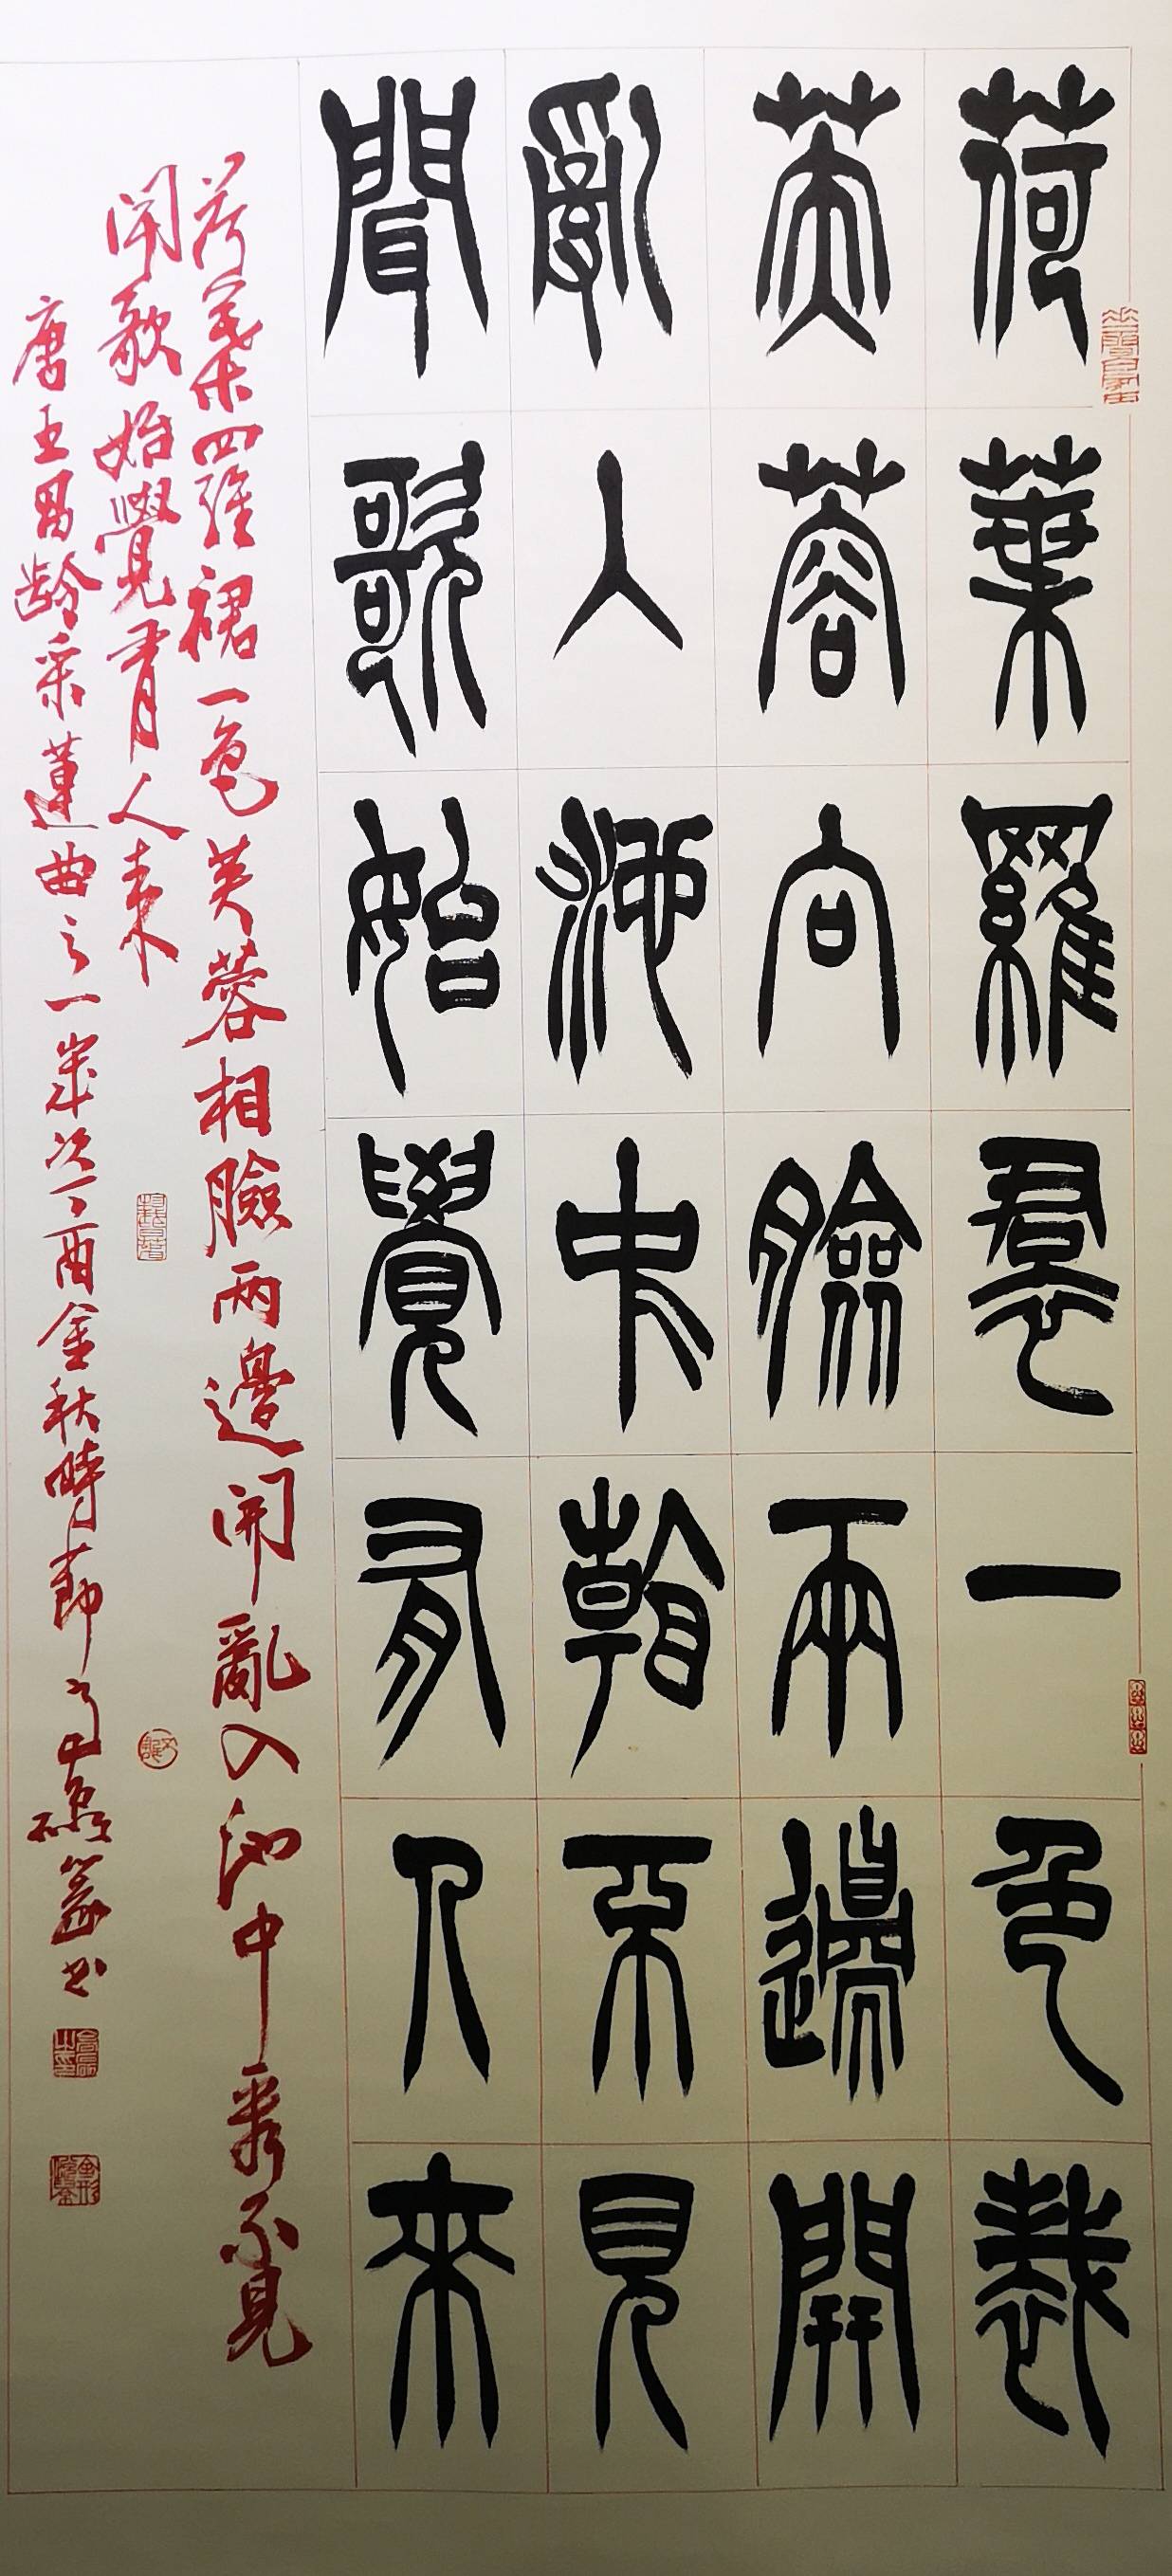 荷葉羅裙一色裁
芙蓉向臉兩邊開
亂入池中看不見
聞歌始覺有人來
荷葉羅裙一色芙蓉相臉两邊開亂入池中看不見
聞歌始覺有人來
唐王昌齡采蓮曲之一歲次丁酉金秋時節篆书